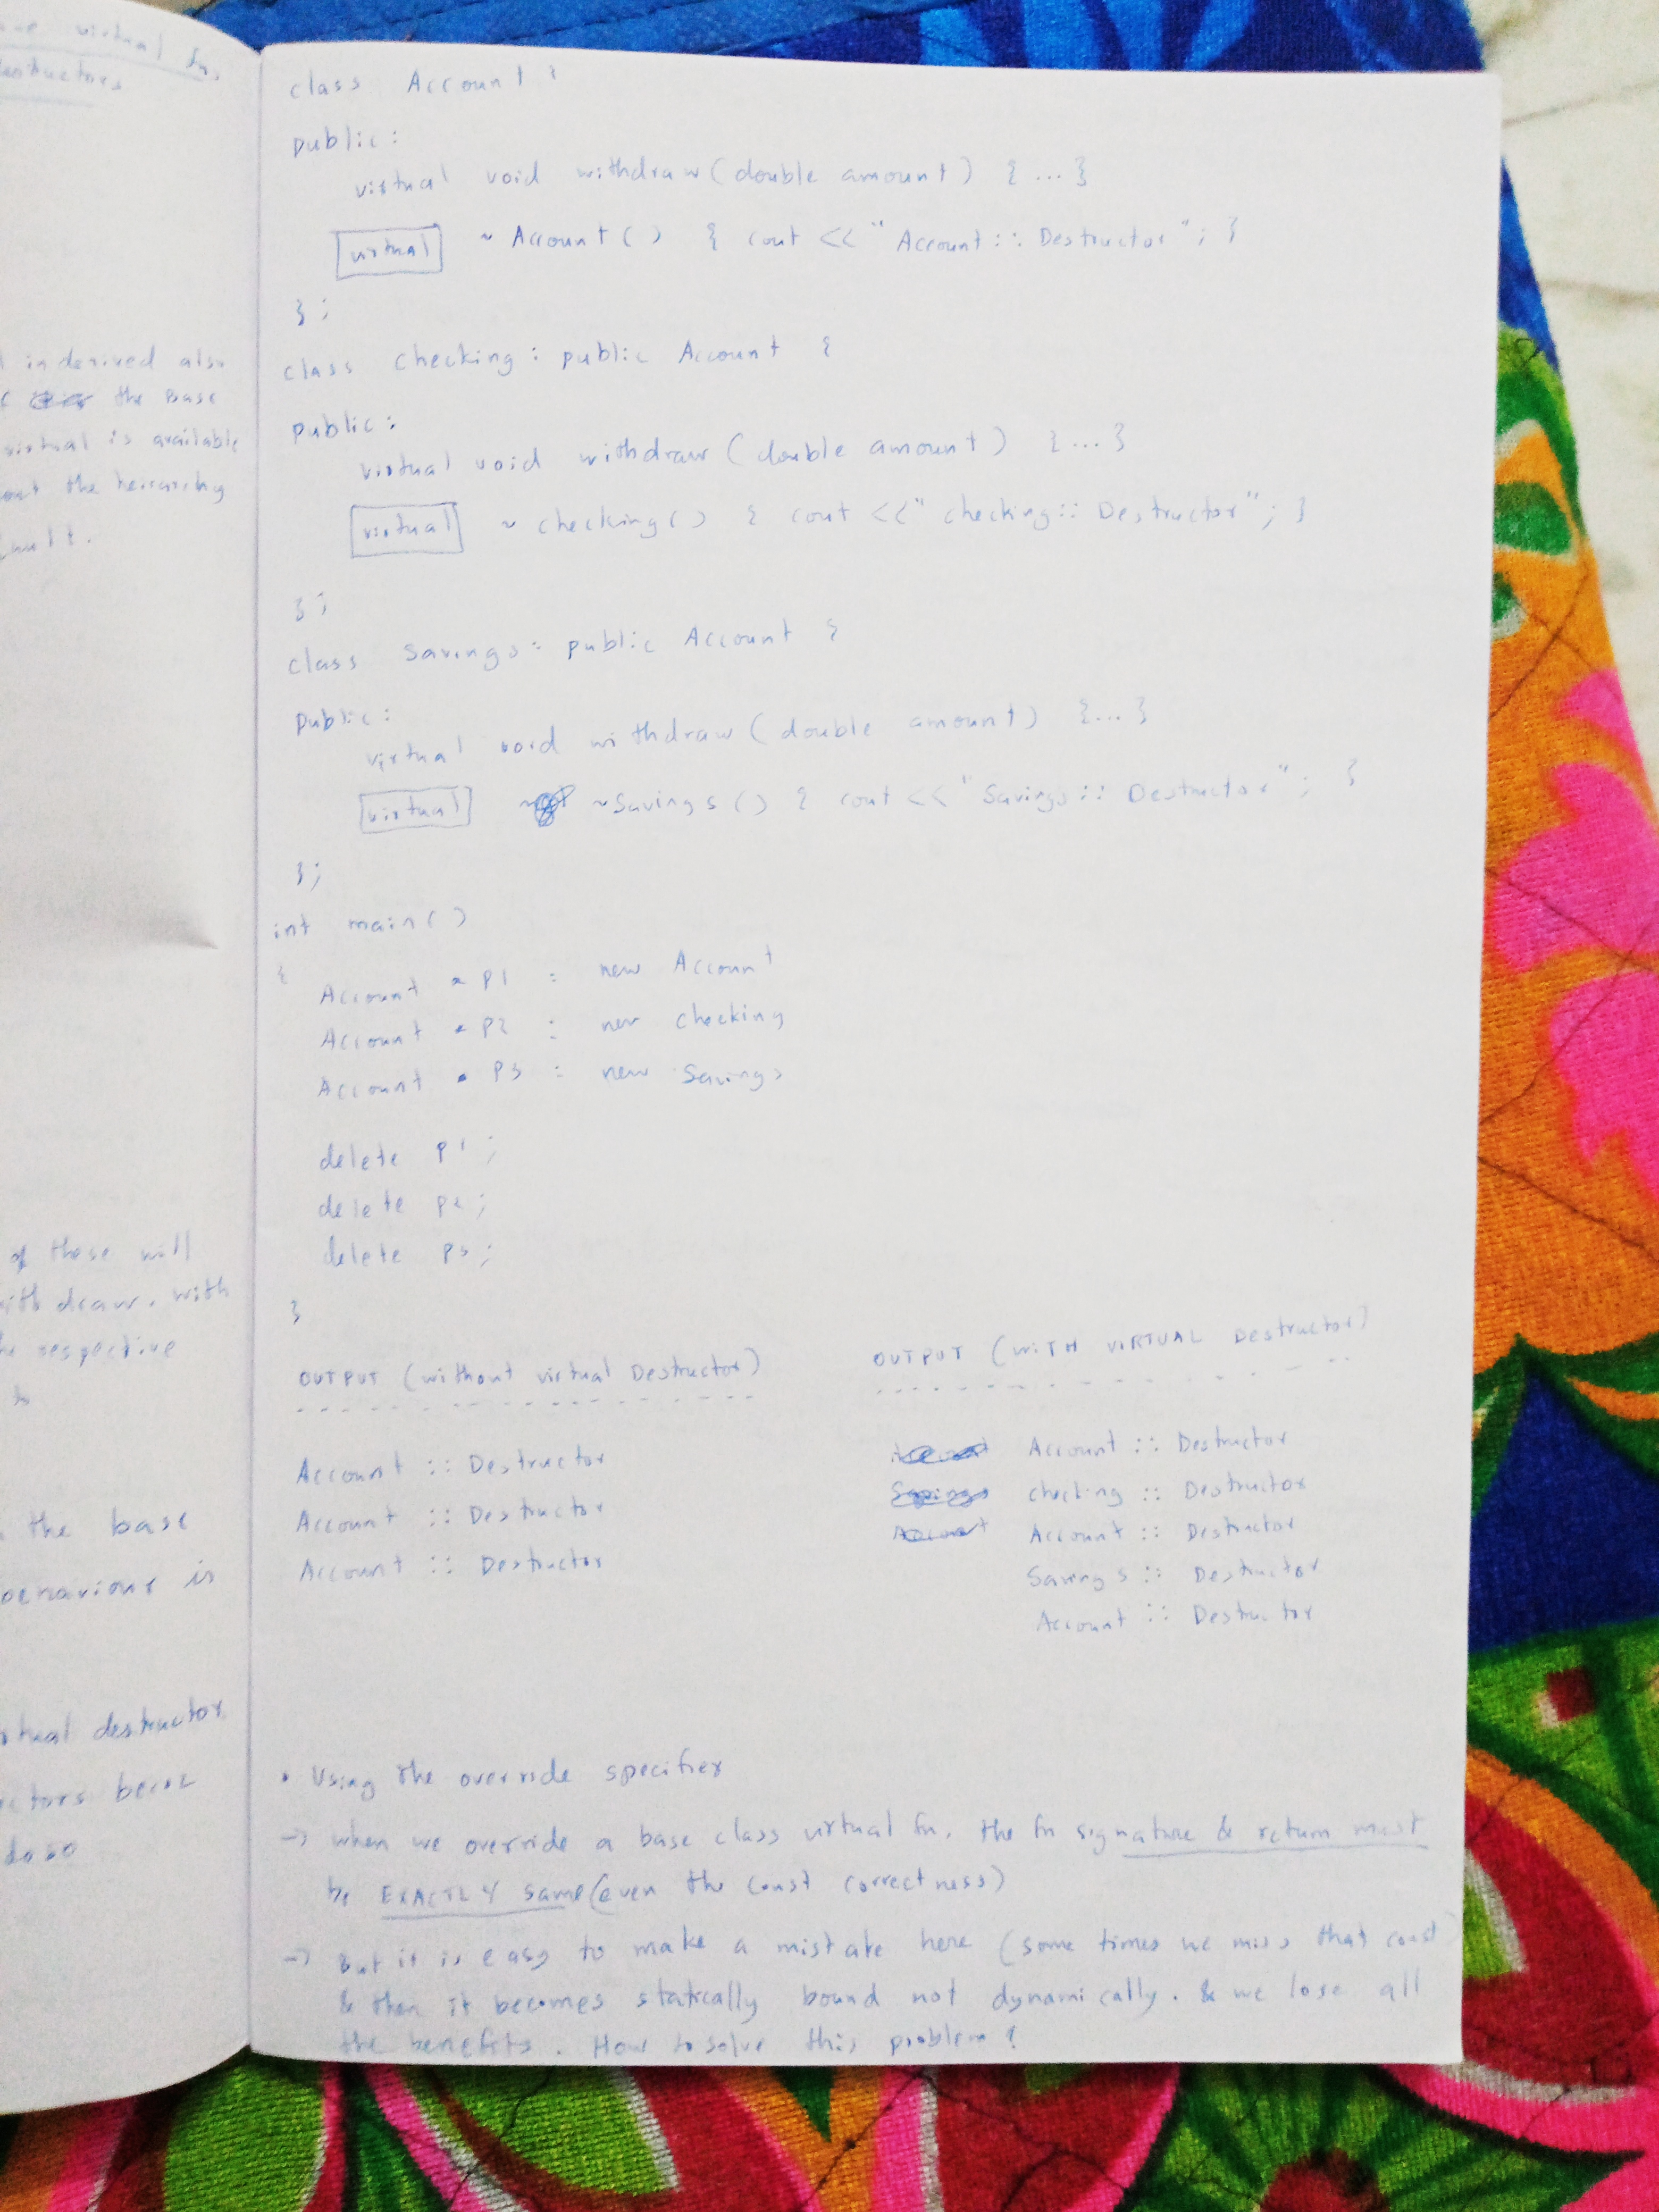 virtual fn,
destructors
in derived also
the Base
virtual is available
out the heirarchy
of these will
withdraw. with
respective
to
the base
behaviour is
virtual destructor
becoz
do so
class Account {
public:
virtual void withdraw(double amount) { ... }
virtual ~ Account() { cout << "Account:: Destructor"; }
};
class checking: public Account {
public:
virtual void withdraw(double amount) { ... }
virtual ~ checking() { cout <<" checking:: Destructor"; }
};
class savings: public Account {
public:
virtual void withdraw(double amount) {...}
virtual ~Savings() { cout << "Savings:: Destructor"; }
};
int main()
{
Account * P1 : new Account
Account * P2 : new checking
Account * P3 : new Savings
delete p1;
delete p2;
delete p3;
}
OUTPUT (without virtual Destructor)
Account :: Destructor
Account :: Destructor
Account :: Destructor
OUTPUT (WITH VIRTUAL Destructor)
Account :: Destructor
checking :: Destructor
Account :: Destructor
Savings :: Destructor
Account :: Destructor
• Using the override specifier
→ when we override a base class virtual fn, the fn signature & return must
be EXACTLY same(even the const correctness)
→ But it is easy to make a mistake here (some times we miss that const
& then it becomes statically bound not dynamically. & we lose all
the benefits. How to solve this problem?